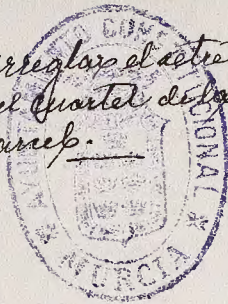 arreglar el retre
el quartel de la
carcel.
AYUNTAMIENTO CONSTITUCIONAL
MURCIA